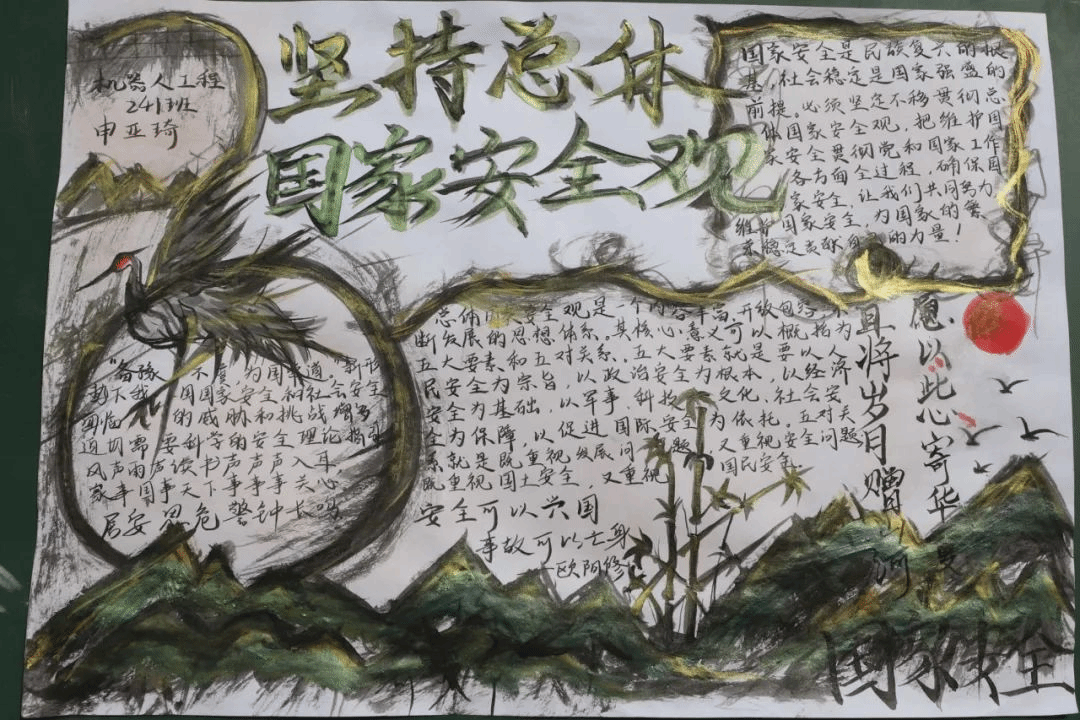 坚持总体
国家安全观
机器人工程
241班
申亚琦
国家安全是民族复兴的根
基,社会稳定是国家强盛的
前提。必须坚定不移贯彻总
体国家安全观,把维护国
家安全贯彻党和国家工作
各方面全过程,确保国
家安全,让我们共同努力
维护国家安全,为国家的繁
荣稳定贡献自己的力量!
"备豫不虞,为国常道"新形
势下我国国家安全和社会安全
面临的威胁和挑战增多
迫切需要科学的安全理论指引
风声雨声读书声声声入耳
家事国事天下事事事关心
居安思危警钟长鸣
总体国家安全观是一个内容丰富,开放包容,不
断发展的思想体系。其核心意义可以概括为
五大要素和五对关系。五大要素就是要以人
民安全为宗旨,以政治安全为根本,以经济
安全为基础,以军事 科技 文化,社会安
全为保障,以促进国际安全为依托。五对关
系就是既重视发展问题,又重视安全问题
既重视国土安全,又重视国民安全
安全可以兴国
事故可以亡身
—欧阳修
愿以此心寄华夏
且将岁月赠河
国家安全